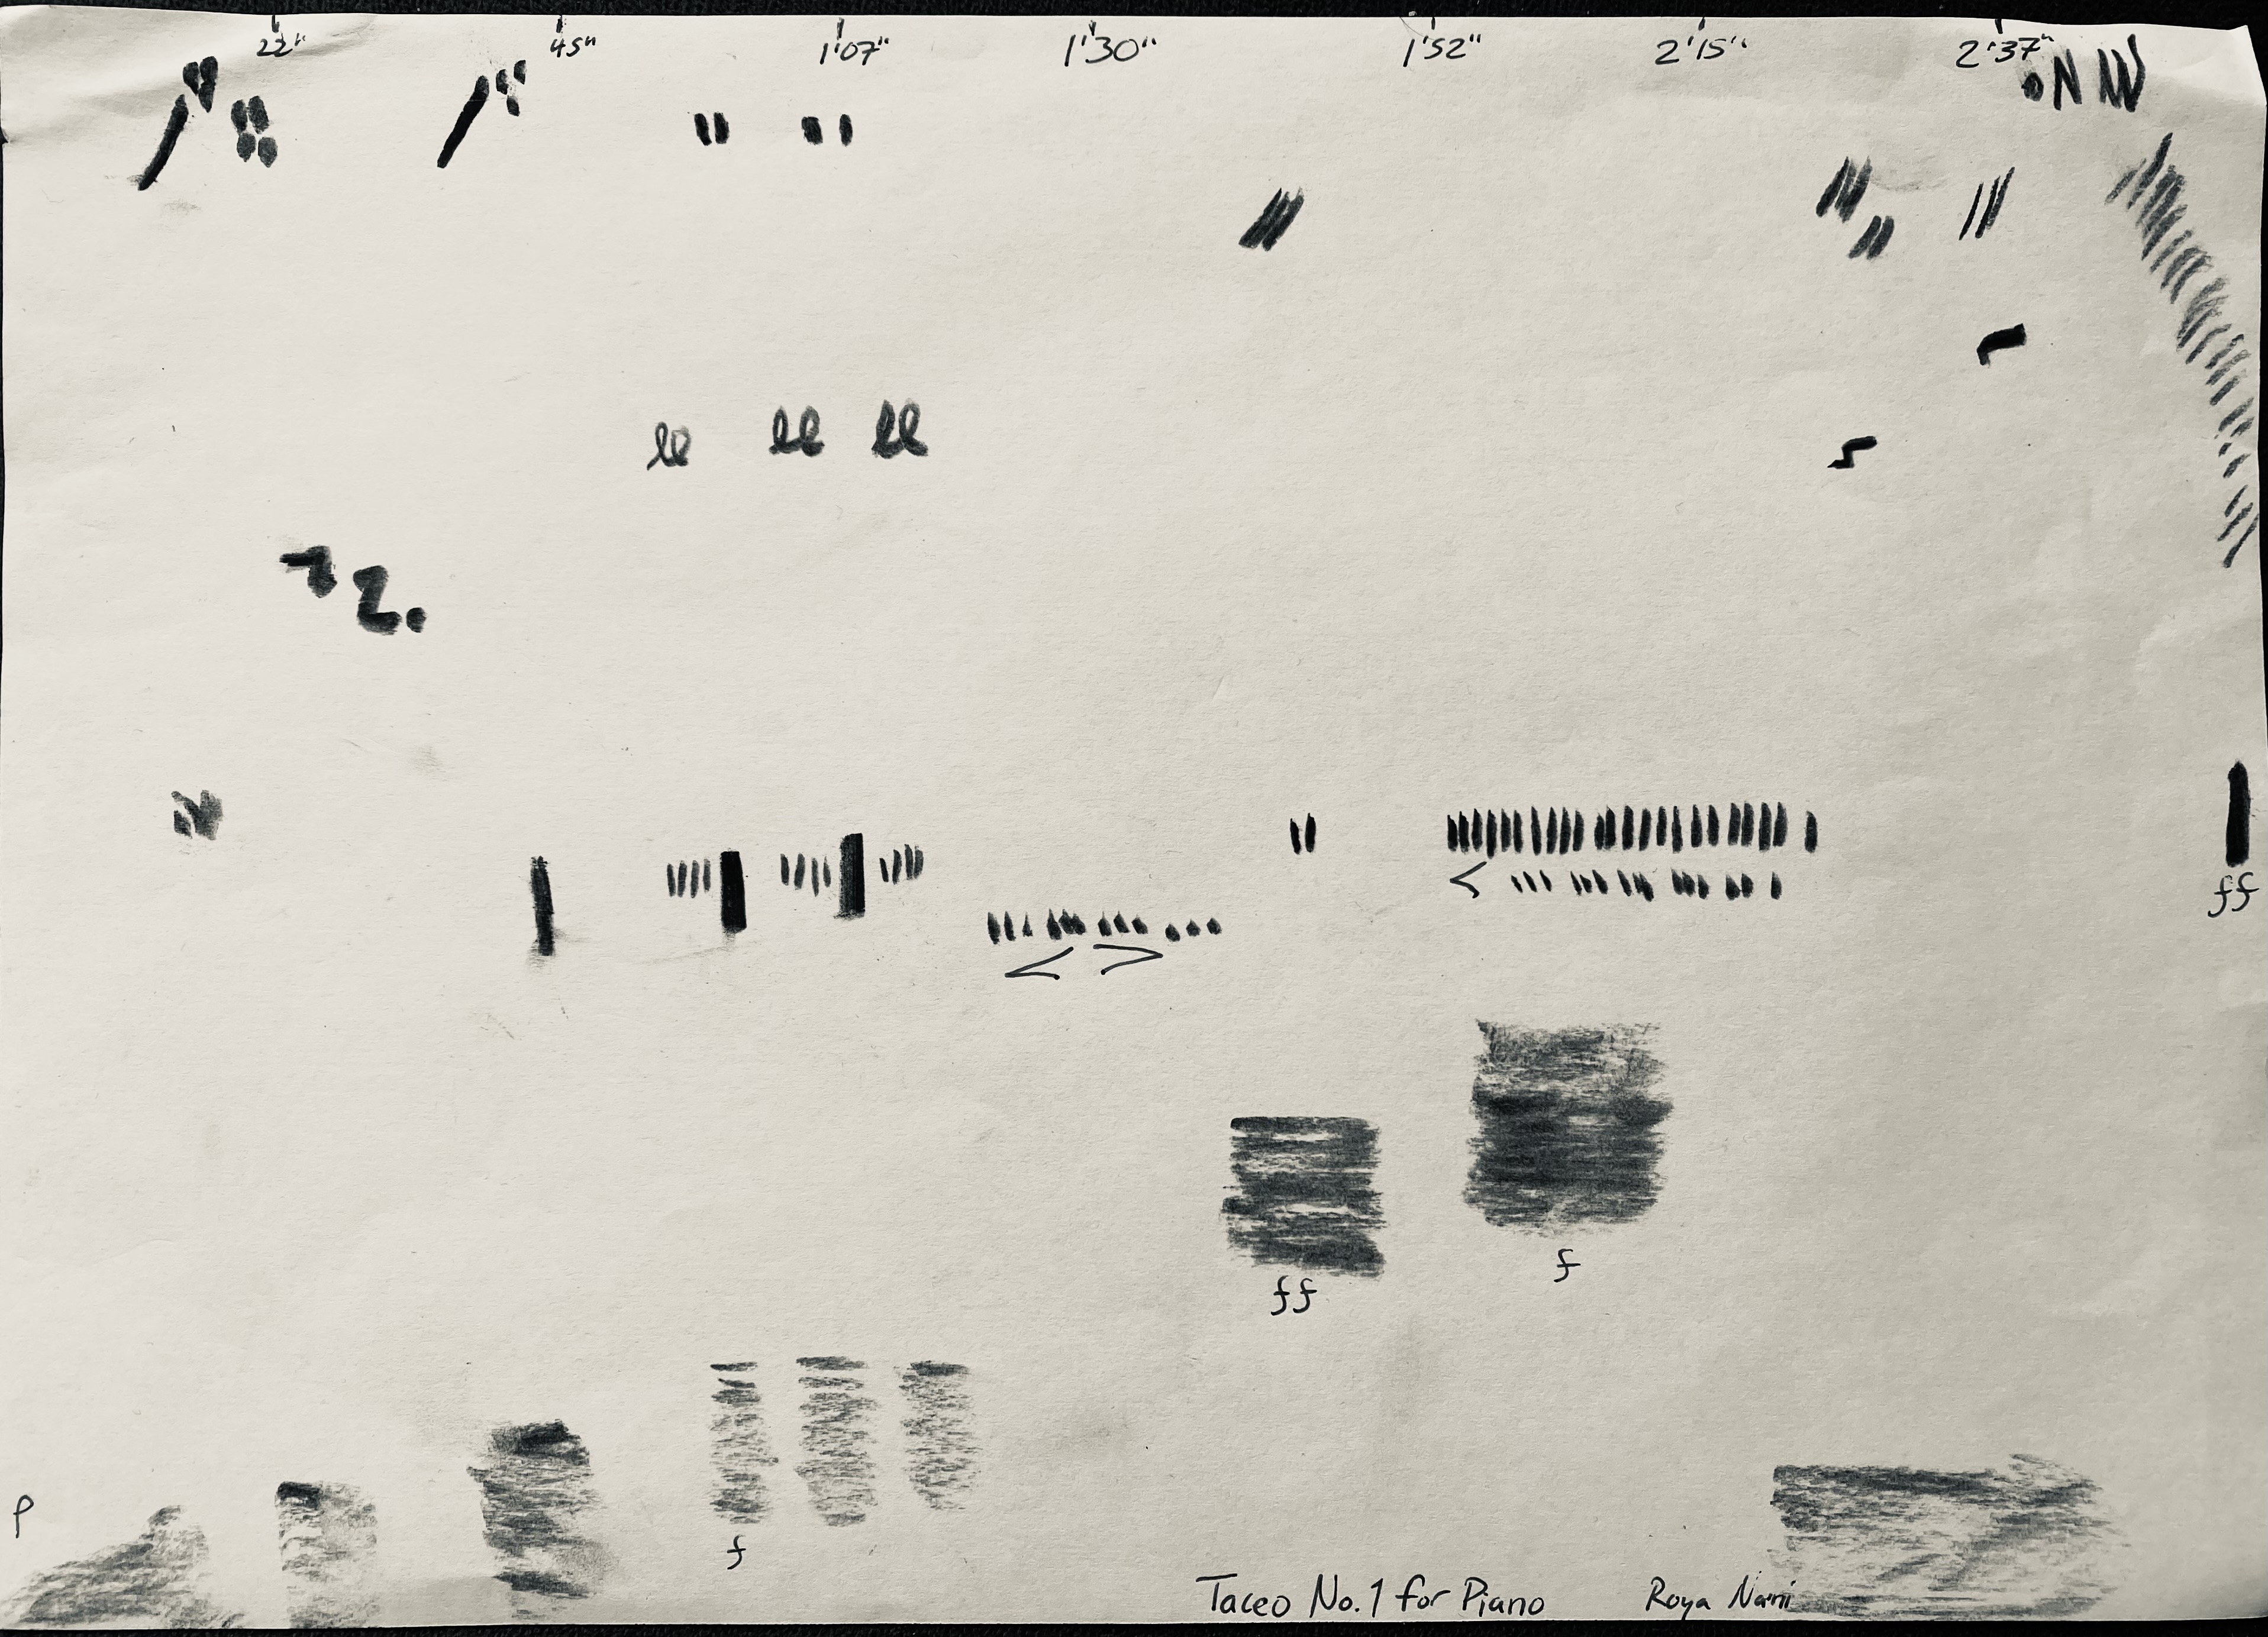 22" 45" 1'07" 1'30" 1'52" 2'15" 2'37"
ff
p
ff
f
f
Taceo No.1 for Piano Roya